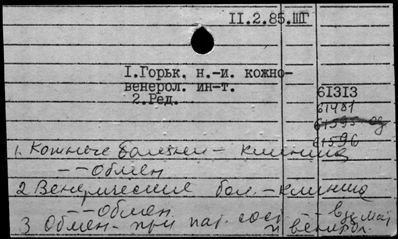 II.2.85.ШГ
I.Горьк. н.-и. кожно-
венерол. ин-т.
2.Ред.
61313
61481
61595
61596
1. Кожные болезни - клиника
-- Обмен
2 Венерические бол. - клиника
-- Обмен
3 Обмен - при пат. сост. в
и венерол.